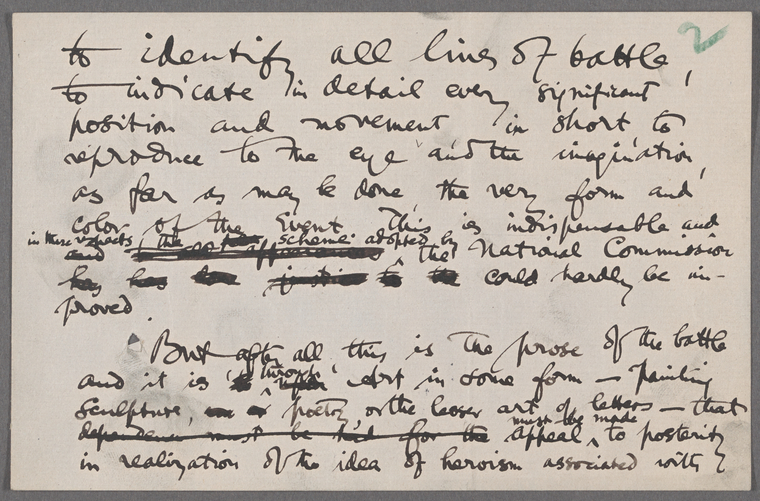 2
to identify all lines of battle,
to indicate in detail every significant
position and movement in short to
reproduce to the eye and the imagination,
as far as may be done, the very form and
color of the Event. This is indispensable and
in these respects the scheme adopted by
and the National Commission
has has to the could hardly be im-
proved.
But after all this is the prose of the battle
and it is through Art in some form — painting
sculpture, or poetry, or the lesser art of letters — that
must be made
dependence must be had for the appeal to posterity
in realization of the idea of heroism associated with